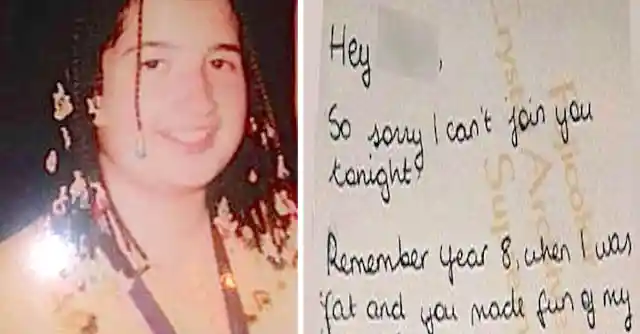 Hey ,
So sorry I can't join you
tonight!
Remember year 8, when I was
fat and you made fun of my